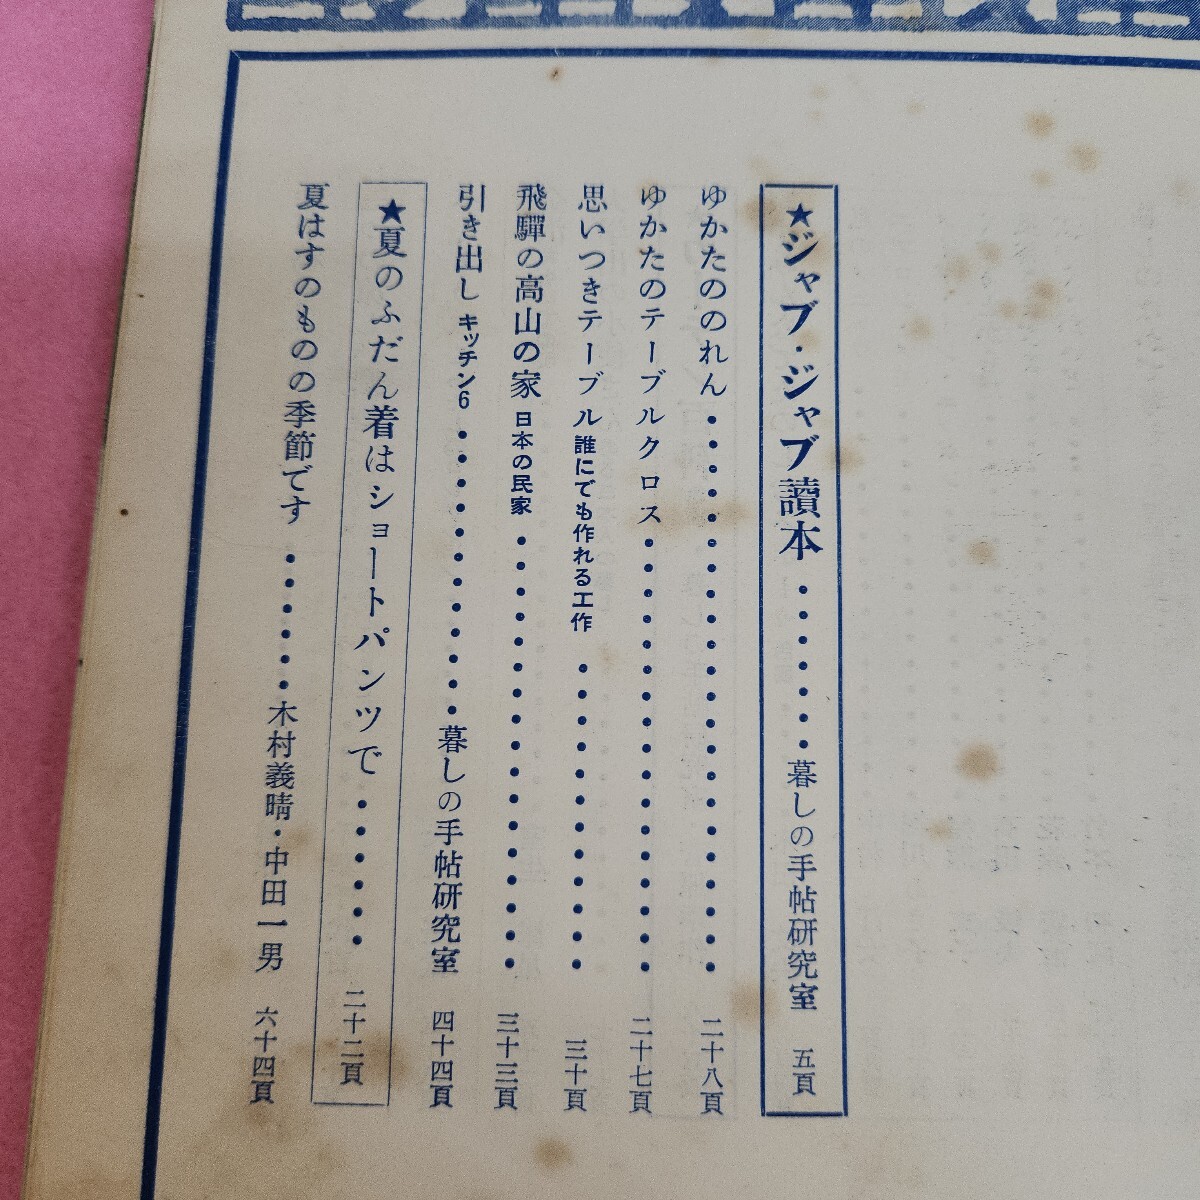 ★ジャブ・ジャブ讀本・・・・・・・暮しの手帖研究室 五頁
ゆかたののれん・・・・・・・・・・・・・・・・・・・・・・二十八頁
ゆかたのテーブルクロス・・・・・・・・・・・・・・・・・二十七頁
思いつきテーブル 誰にでも作れる工作・・・・・・・・・・・・三十頁
飛驒の高山の家 日本の民家・・・・・・・・・・・・・・・・・三十三頁
引き出し キッチン6・・・・・・・・・・・・暮しの手帖研究室 四十四頁
★夏のふだん着はショートパンツで・・・・・・二十二頁
夏はすのものの季節です・・・・・・木村義晴・中田一男 六十四頁